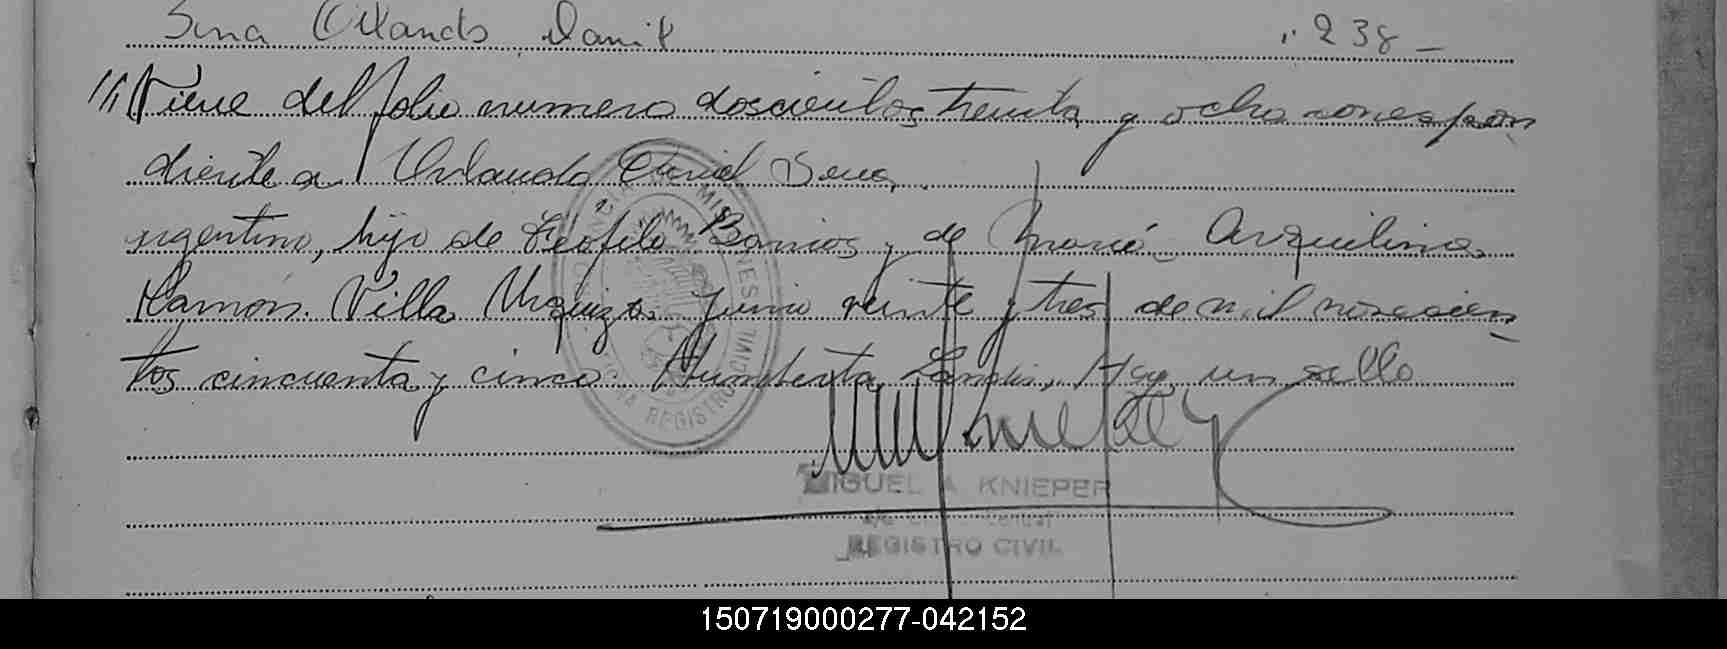 Sena Orlando Daniel 238_
///Viene del folio numero doscientos treinta y ocho correspon
diente a Orlando Daniel Sena,
argentino, hijo de Teofilo Barrios y de María Arquilina
Ramón. Villa Urquiza. Junio veinte y tres de mil novecien
tos cincuenta y cinco. Humberto Landin, Hay un sello
MISIONES
REGISTRO CIVIL
MIGUEL A. KNIEPER
REGISTRO CIVIL
150719000277-042152